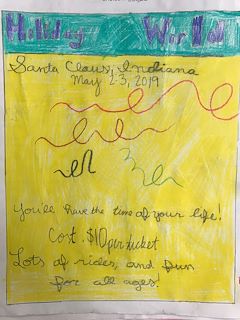 Holiday World
Santa Claus, Indiana
May 2-3, 2019
You'll have the time of your life!
Cost: $10 per ticket
Lots of rides, and fun
for all ages!